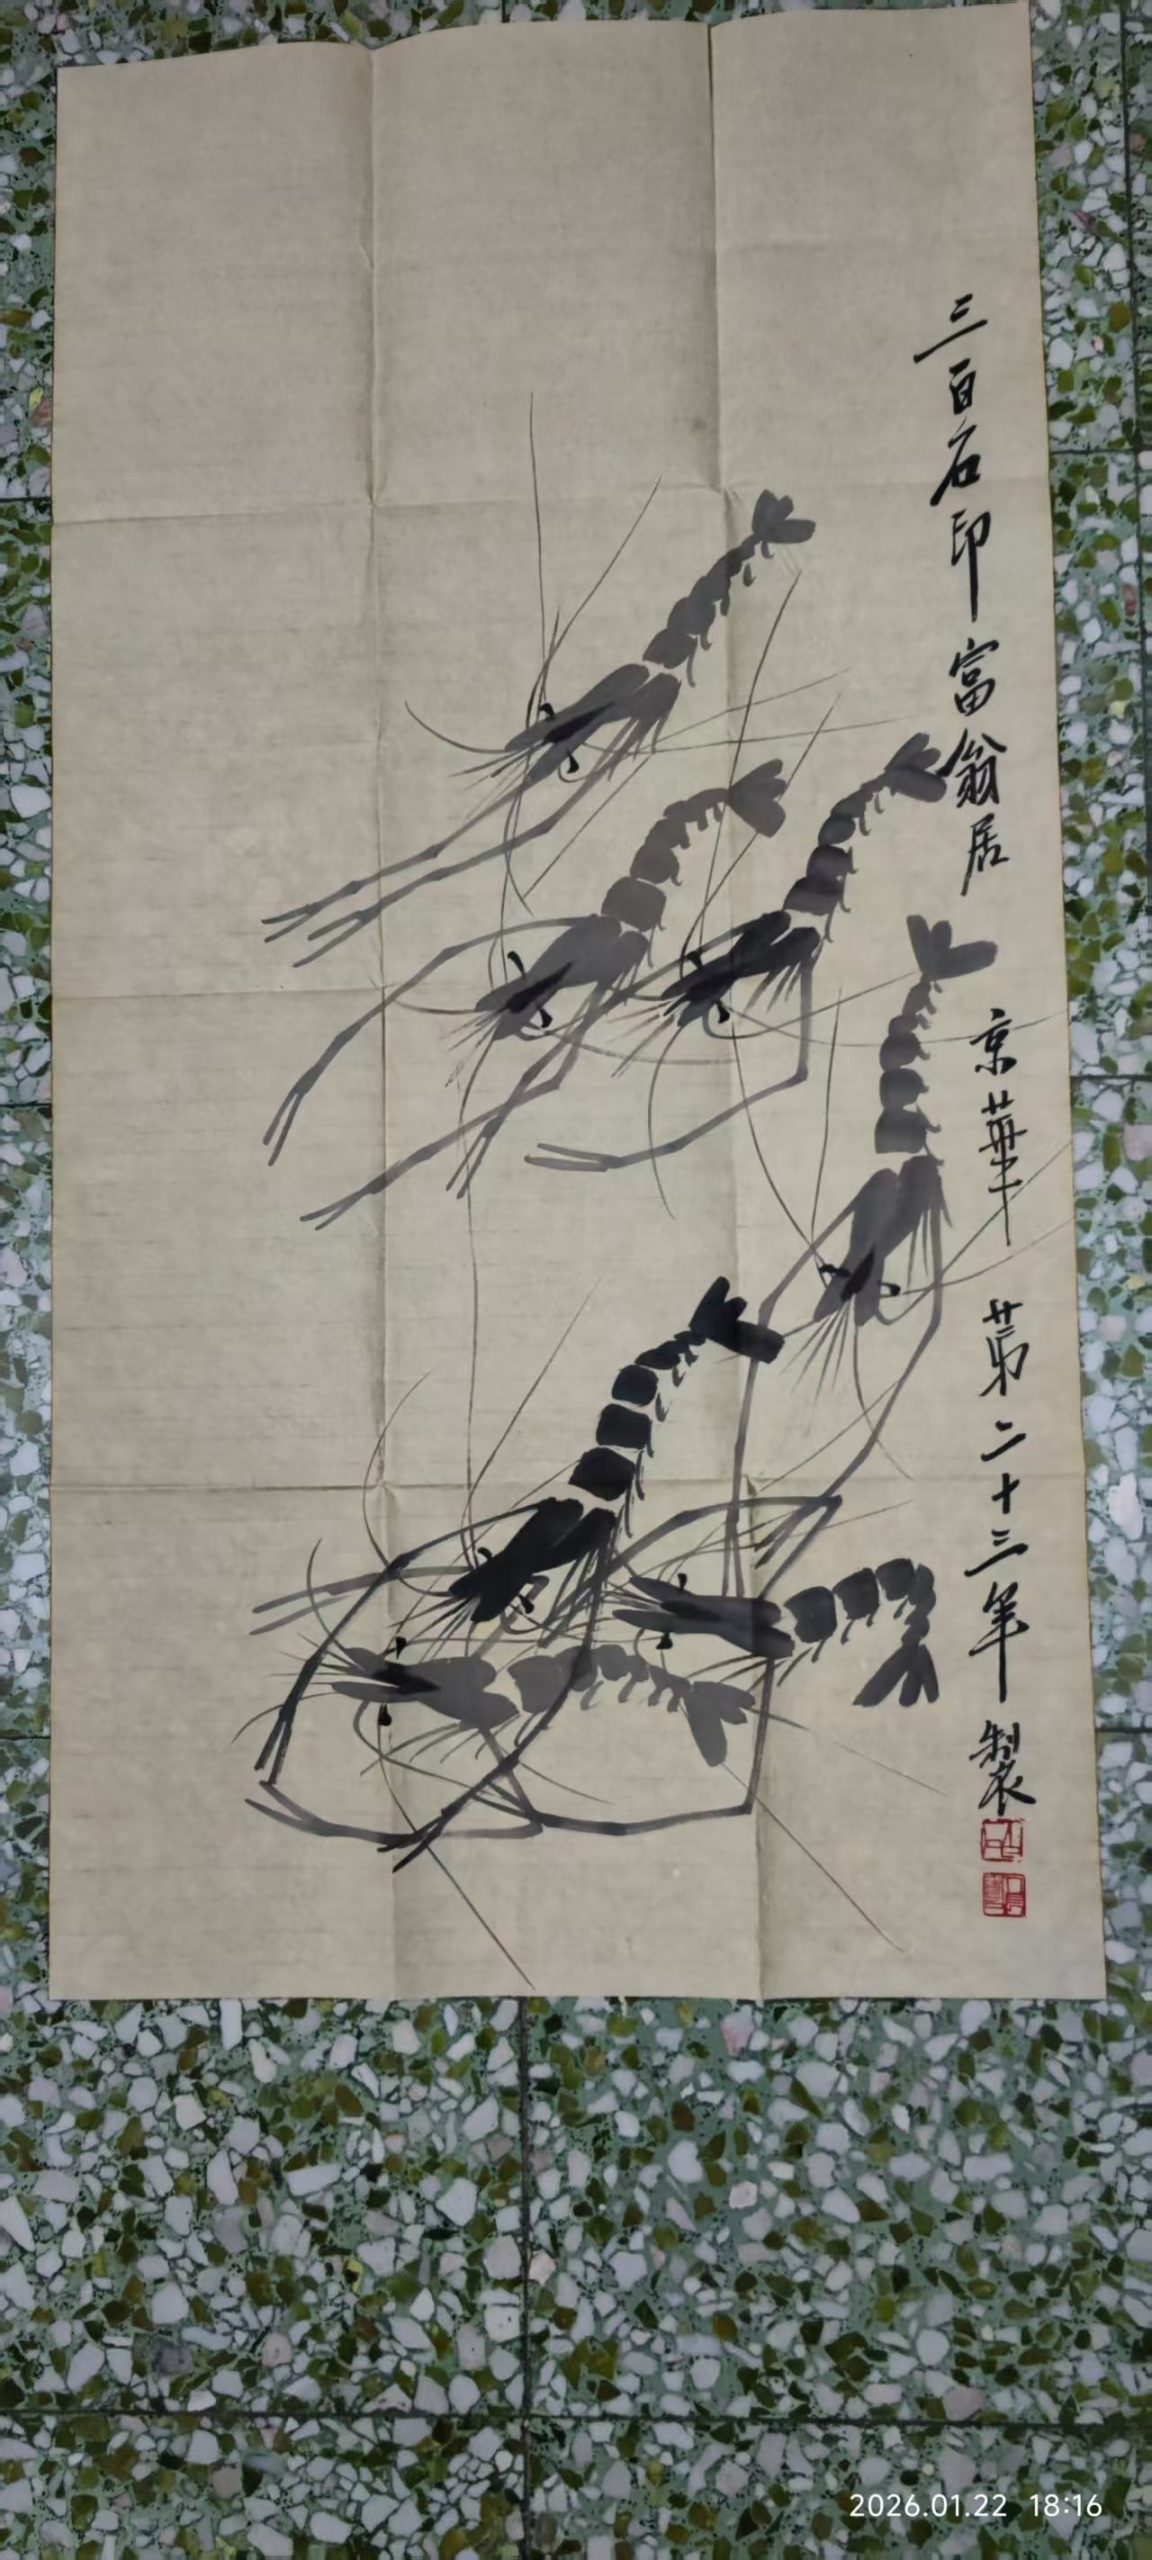 三百石印富翁居京華第二十三年製
2026.01.22 18:16